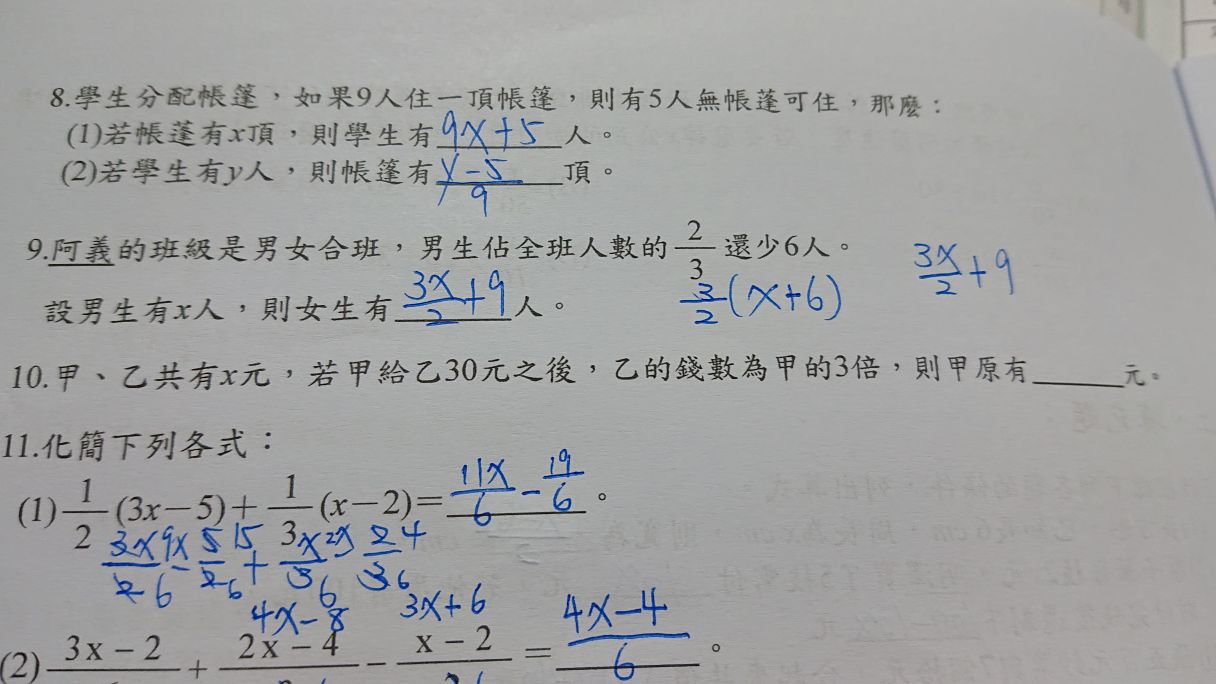 8.學生分配帳篷，如果9人住一頂帳篷，則有5人無帳蓬可住，那麼：
(1)若帳蓬有x頂，則學生有 9x+5 人。
(2)若學生有y人，則帳篷有 y-5/9 頂。
9.阿義的班級是男女合班，男生佔全班人數的 2/3 還少6人。
3x/2+9
設男生有x人，則女生有 3x/2+9 人。 3/2(x+6)
10.甲、乙共有x元，若甲給乙30元之後，乙的錢數為甲的3倍，則甲原有______元。
11.化簡下列各式：
(1) 1/2 (3x-5)+ 1/3 (x-2)= 11x/6 - 19/6 。
4x-8 3x+6
(2) 3x-2 + 2x-4 - x-2 = 4x-4/6 。